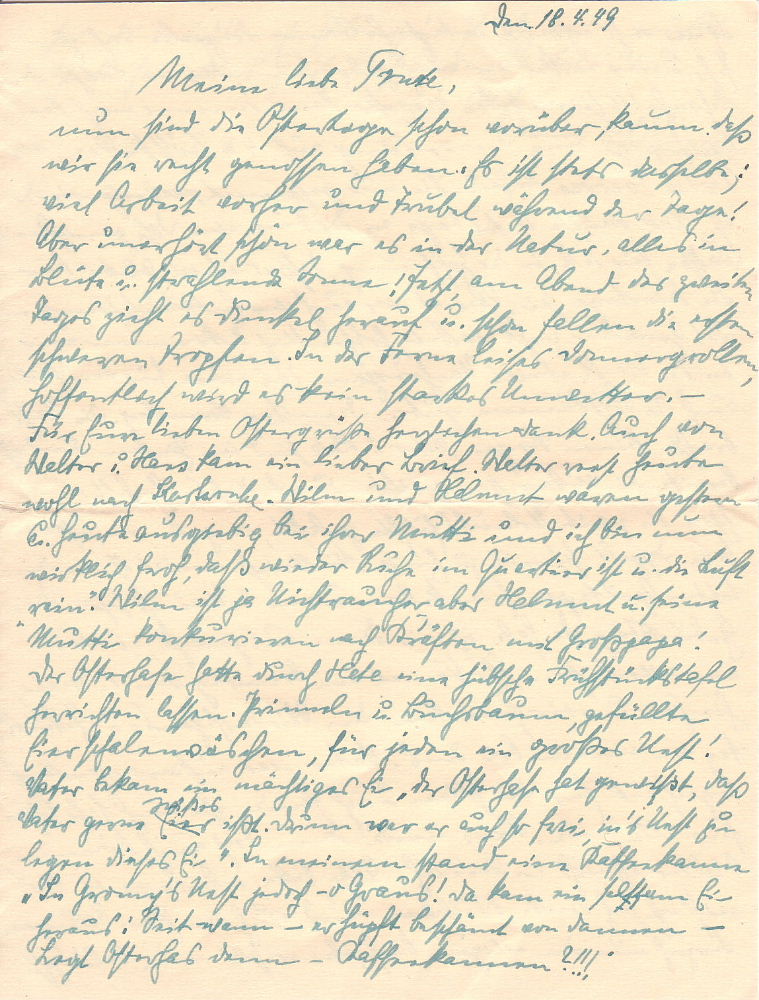 Den 18.4.49
Meine liebe Trude,
nun sind die Ostertage schon vorüber, kaum daß
wir sie recht genossen haben. Es ist stets dasselbe;
viel Arbeit vorher und Trubel während der Tage!
Aber unerhört schön war es in der Natur, alles in
Blüte u. strahlende Sonne! Jetzt, am Abend des zweiten
Tages zieht es dunkel herauf u. schon fallen die ersten
schweren Tropfen. In der Ferne leises Donnergrollen,
hoffentlich wird es kein starkes Unwetter. –
Für Eure lieben Ostergrüße herzlichen Dank. Auch von
Walter u. Hans kam ein lieber Brief. Walter reist heute
wohl nach Karlsruhe. Wilm und Helmut waren gestern
u. heute ausgiebig bei ihrer Mutti und ich bin nun
wirklich froh, daß wieder Ruhe im Quartier ist u. die Luft
rein". Wilm ist ja Nichtraucher aber Helmut u. seine
"Mutti konkurieren nach Kräften mit Großpapa!
Der Osterhase hatte durch Hele eine hübsche Frühstückstafel
herrichten lassen. Primeln u. Buchsbaum, gefüllte
Eierschalenväschen, für jeden ein großes Nest!
Vater bekam ein mächtiges Ei „der Osterhase hat gewißt, daß
Vater gerne großes Eier ißt. Drum war er auch so frei, in's Nest zu
legen dieses Ei". In meinem stand eine Kaffeekanne
„In Gromy's Nest jedoch – o Graus! da kam ein seltsam Ei
heraus: Seit wann – er hüpft beschämt von dannen –
Legt Osterhas denn – Kaffeekannen?!!!"